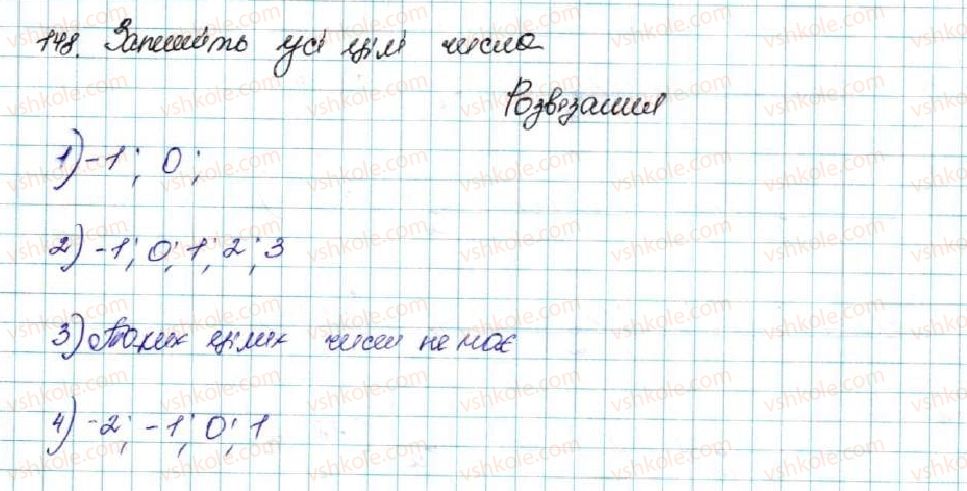 148. Запишіть усі цілі числа
Розвязання
1) -1; 0;
2) -1; 0; 1; 2; 3
3) Таких цілих чисел не має
4) -2; -1; 0; 1
vshkole.com